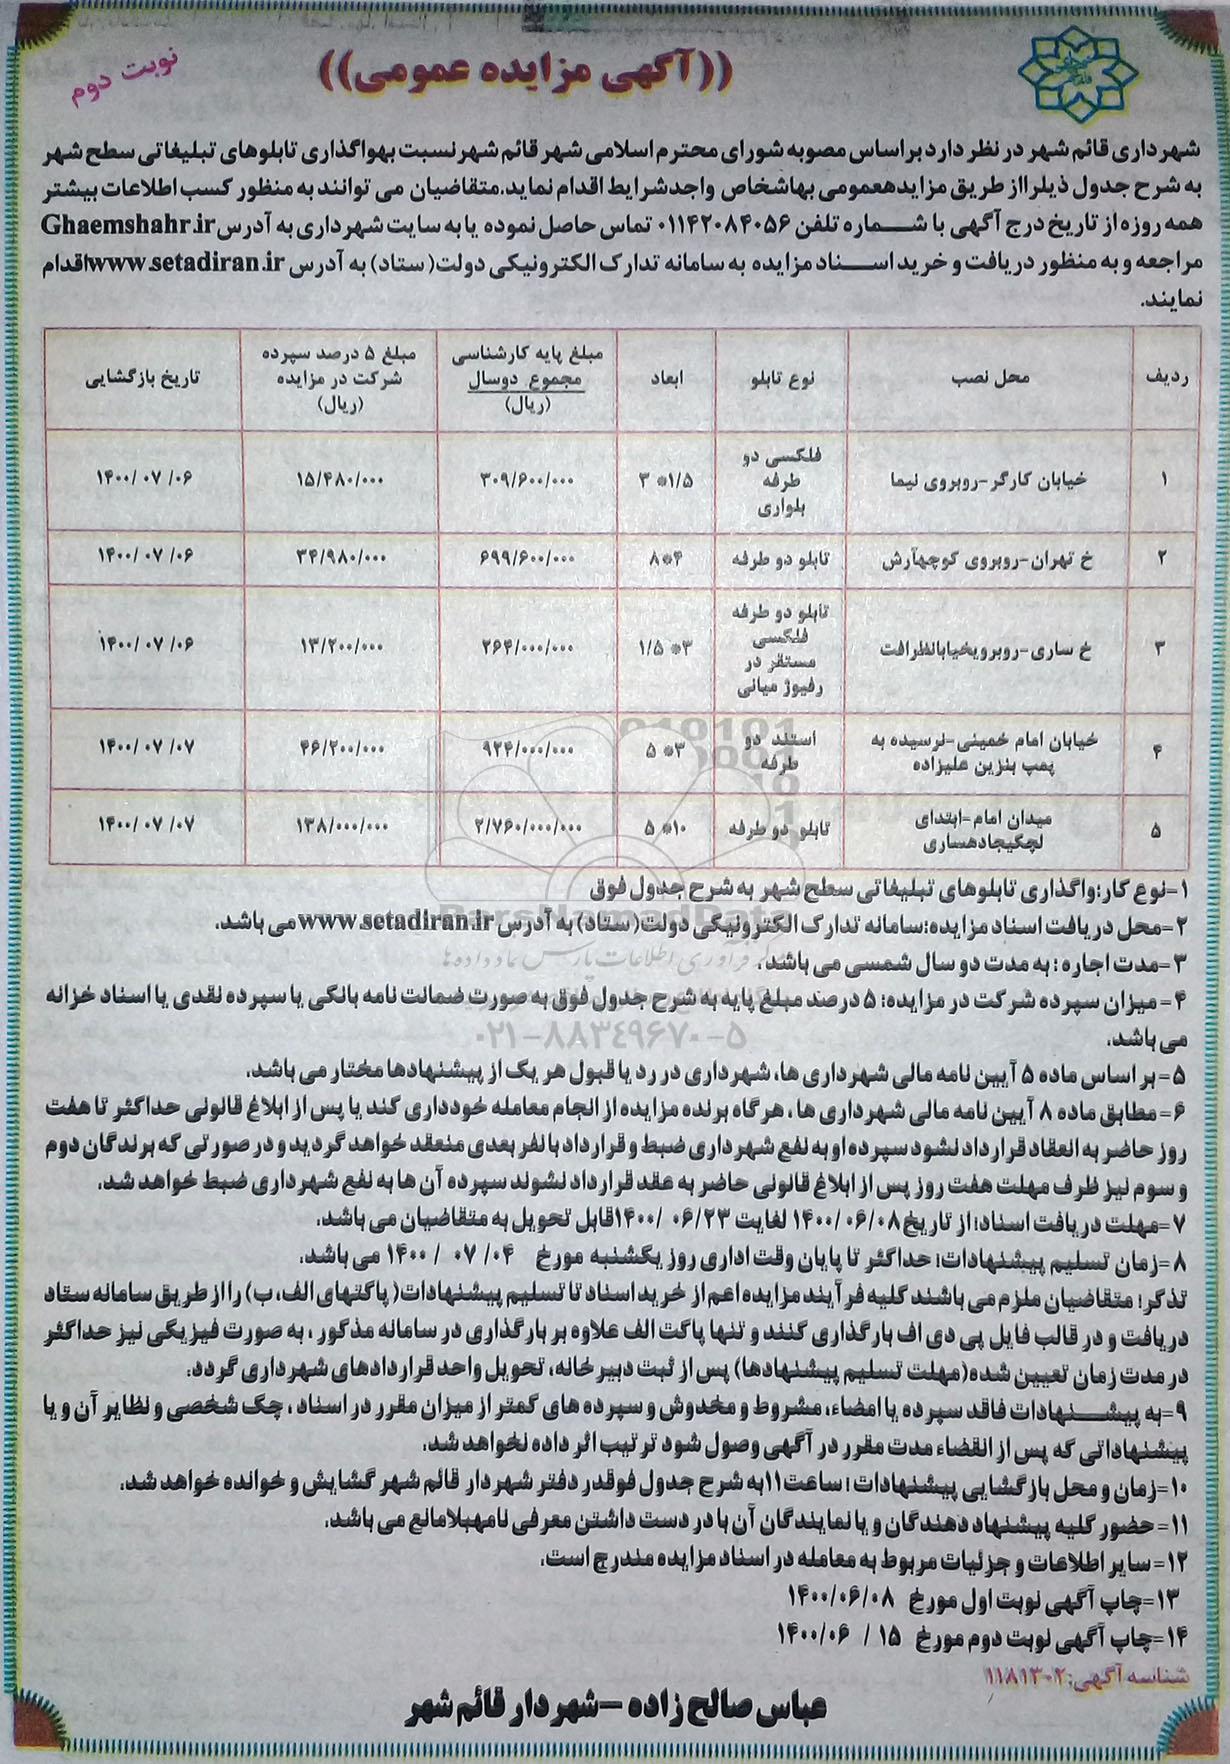 ((آگهی مزایده عمومی))
نوبت دوم
شهرداری قائم شهر در نظر دارد براساس مصوبه شورای محترم اسلامی شهر قائم شهر نسبت بهواگذاری تابلوهای تبلیغاتی سطح شهر
به شرح جدول ذیلرااز طریق مزایدهعمومی بهاشخاص واجدشرایط اقدام نماید.متقاضیان می توانند به منظور کسب اطلاعات بیشتر
همه روزه از تاریخ درج آگهی با شماره تلفن ۰۱۱۴۲۰۸۴۰۵۶ تماس حاصل نموده یا به سایت شهرداری به آدرس Ghaemshahr.ir
مراجعه و به منظور دریافت و خرید اسناد مزایده به سامانه تدارک الکترونیکی دولت( ستاد) به آدرس www.setadiran.irاقدام
نمایند.
ردیف | محل نصب | نوع تابلو | ابعاد | مبلغ پایه کارشناسی مجموع دوسال (ریال) | مبلغ ۵ درصد سپرده شرکت در مزایده (ریال) | تاریخ بازگشایی
۱ | خیابان کارگر-روبروی نیما | فلکسی دو طرفه بلواری | ۱/۵* ۳ | ۳۰۹/۶۰۰/۰۰۰ | ۱۵/۴۸۰/۰۰۰ | ۱۴۰۰/ ۰۷ /۰۶
۲ | خ تهران-روبروی کوچهآرش | تابلو دو طرفه | ۴*۸ | ۶۹۹/۶۰۰/۰۰۰ | ۳۴/۹۸۰/۰۰۰ | ۱۴۰۰/ ۰۷ /۰۶
۳ | خ ساری-روبرویخیابانظرافت | تابلو دو طرفه فلکسی مستقر در رفیوژ میانی | ۳* ۱/۵ | ۲۶۴/۰۰۰/۰۰۰ | ۱۳/۲۰۰/۰۰۰ | ۱۴۰۰/ ۰۷ /۰۶
۴ | خیابان امام خمینی-نرسیده به پمپ بنزین علیزاده | استند دو طرفه | ۳* ۵ | ۹۲۴/۰۰۰/۰۰۰ | ۴۶/۲۰۰/۰۰۰ | ۱۴۰۰/ ۰۷ /۰۷
۵ | میدان امام-ابتدای لچکیجادهساری | تابلو دو طرفه | ۱۰* ۵ | ۲/۷۶۰/۰۰۰/۰۰۰ | ۱۳۸/۰۰۰/۰۰۰ | ۱۴۰۰/ ۰۷ /۰۷
۱-نوع کار:واگذاری تابلوهای تبلیغاتی سطح شهر به شرح جدول فوق
۲-محل دریافت اسناد مزایده:سامانه تدارک الکترونیکی دولت( ستاد) به آدرس www.setadiran.ir می باشد.
۳-مدت اجاره : به مدت دو سال شمسی می باشد.
۴- میزان سپرده شرکت در مزایده: ۵ درصد مبلغ پایه به شرح جدول فوق به صورت ضمانت نامه بانکی یا سپرده نقدی یا اسناد خزانه
می باشد.
۰۲۱-۸۸۳۴۹۶۷۰-۵
۵- بر اساس ماده ۵ آیین نامه مالی شهرداری ها، شهرداری در رد یا قبول هر یک از پیشنهادها مختار می باشد.
۶- مطابق ماده ۸ آیین نامه مالی شهرداری ها ، هرگاه برنده مزایده از انجام معامله خودداری کند یا پس از ابلاغ قانونی حداکثر تا هفت
روز حاضر به انعقاد قرارداد نشود سپرده او به نفع شهرداری ضبط و قرارداد با نفر بعدی منعقد خواهد گردید و در صورتی که برندگان دوم
و سوم نیز ظرف مهلت هفت روز پس از ابلاغ قانونی حاضر به عقد قرارداد نشوند سپرده آن ها به نفع شهرداری ضبط خواهد شد.
۷-مهلت دریافت اسناد: از تاریخ ۱۴۰۰/۰۶/۰۸ لغایت ۱۴۰۰/ ۰۶/۲۳قابل تحویل به متقاضیان می باشد.
۸-زمان تسلیم پیشنهادات: حداکثر تا پایان وقت اداری روز یکشنبه مورخ ۱۴۰۰ / ۰۷ /۰۴ می باشد.
تذکر: متقاضیان ملزم می باشند کلیه فرآیند مزایده اعم از خرید اسناد تا تسلیم پیشنهادات( پاکتهای الف، ب) را از طریق سامانه ستاد
دریافت و در قالب فایل پی دی اف بارگذاری کنند و تنها پاکت الف علاوه بر بارگذاری در سامانه مذکور ، به صورت فیزیکی نیز حداکثر
در مدت زمان تعیین شده(مهلت تسلیم پیشنهادها) پس از ثبت دبیرخانه، تحویل واحد قراردادهای شهرداری گردد.
۹-به پیشنهادات فاقد سپرده یا امضاء، مشروط و مخدوش و سپرده های کمتر از میزان مقرر در اسناد ، چک شخصی و نظایر آن و یا
پیشنهاداتی که پس از انقضاء مدت مقرر در آگهی وصول شود ترتیب اثر داده نخواهد شد.
۱۰-زمان و محل بازگشایی پیشنهادات : ساعت۱۱به شرح جدول فوقدر دفتر شهردار قائم شهر گشایش و خوانده خواهد شد.
۱۱- حضور کلیه پیشنهاد دهندگان و یا نمایندگان آن با در دست داشتن معرفی نامهبلامانع می باشد.
۱۲- سایر اطلاعات و جزئیات مربوط به معامله در اسناد مزایده مندرج است.
۱۳-چاپ آگهی نوبت اول مورخ ۱۴۰۰/۰۶/۰۸
۱۴-چاپ آگهی نوبت دوم مورخ ۱۵ / ۱۴۰۰/۰۶
شناسه آگهی: ۱۱۸۱۳۰۲
عباس صالح زاده -شهردار قائم شهر